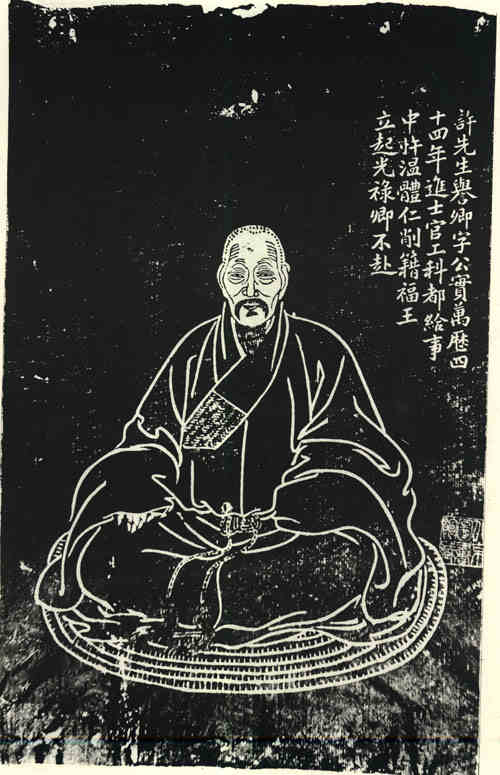 許先生譽卿字公實萬歷四
十四年進士官工科都給事
中忤温體仁削籍福王
立起光祿卿不赴